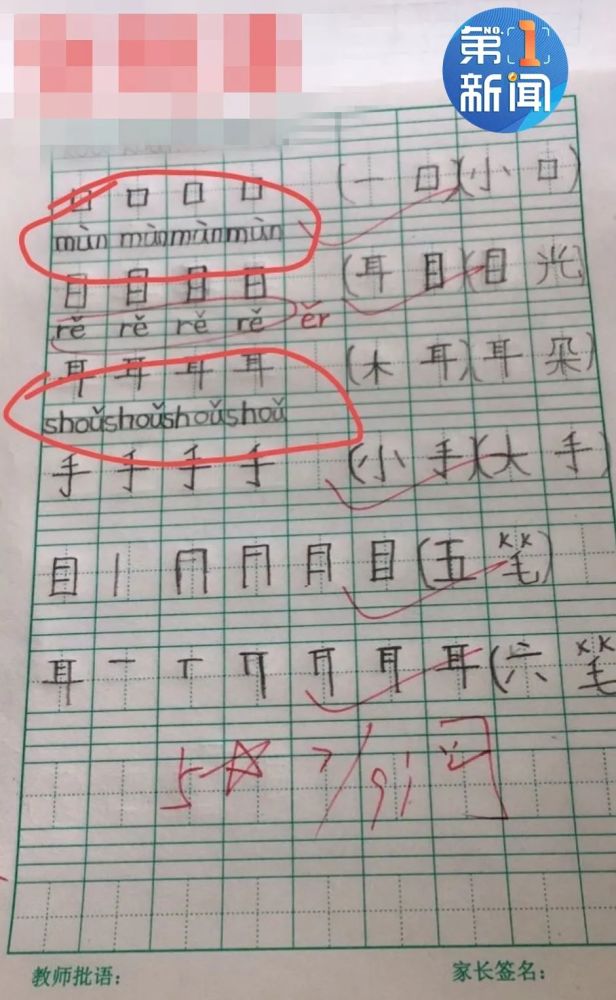 第1新闻
NO.
口 口 口 口 (一 口)(小 口)
mùn mùn mùn mùn
目 目 目 目 (耳 目)(目 光)
rě rě rě rě ěr
耳 耳 耳 耳 (木 耳)(耳 朵)
shoǔ shoǔ shoǔ shoǔ
手 手 手 手 (小 手)(大 手)
目 丨 冂 目 (五 笔)
耳 一 丅 耳 (六 笔
5☆ 7/9
教师批语: 家长签名: